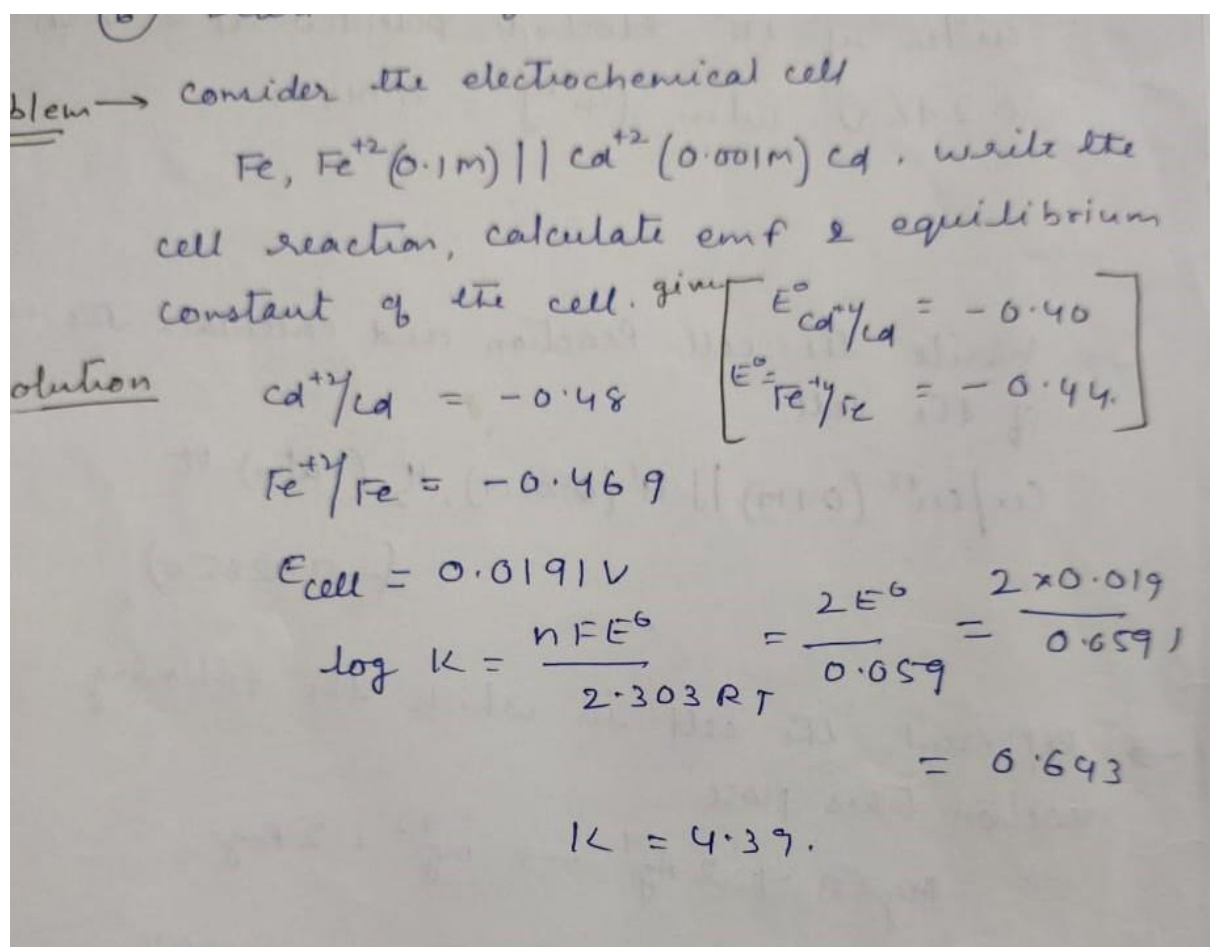 6
blem → Consider the electrochemical cell
Fe, Fe⁺² (0.1m) || Cd⁺² (0.001m) Cd. write the
cell reaction, calculate emf & equilibrium
constant of the cell. given [E° Cd⁺²/Cd = -0.40
E°= Fe⁺²/Fe = -0.44.]
olution Cd⁺²/Cd = -0.48
Fe⁺²/Fe = -0.469
Ecell = 0.0191V
log K = nFE° / 2.303RT = 2E° / 0.059 = 2×0.019 / 0.0591
= 0.643
K = 4.39.